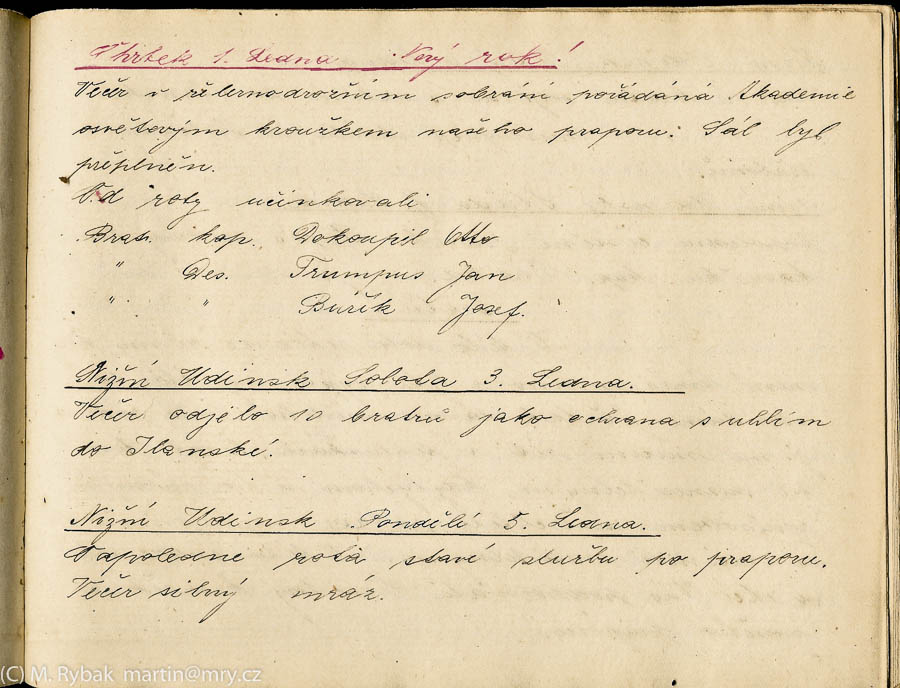 Čtvrtek 1. Ledna Nový rok!
Večer v železnodrožním sobrání pořádáná Akademie
osvětovým kroužkem našeho praporu. Sál byl
přeplněn.
Od roty učinkovali
Bratr. kop. Dokoupil Otto
" Des. Trumpus Jan
" " Buřík Josef.
Nižní Udinsk Sobota 3. Ledna.
Večer odjélo 10 bratrů jako ochrana s uhlím
do Ilanské.
Nižní Udinsk Pondělí 5. Ledna.
Odpoledne rota stavé službu po praporu.
Večer silný mráz.
(C) M. Rybak martin@mry.cz